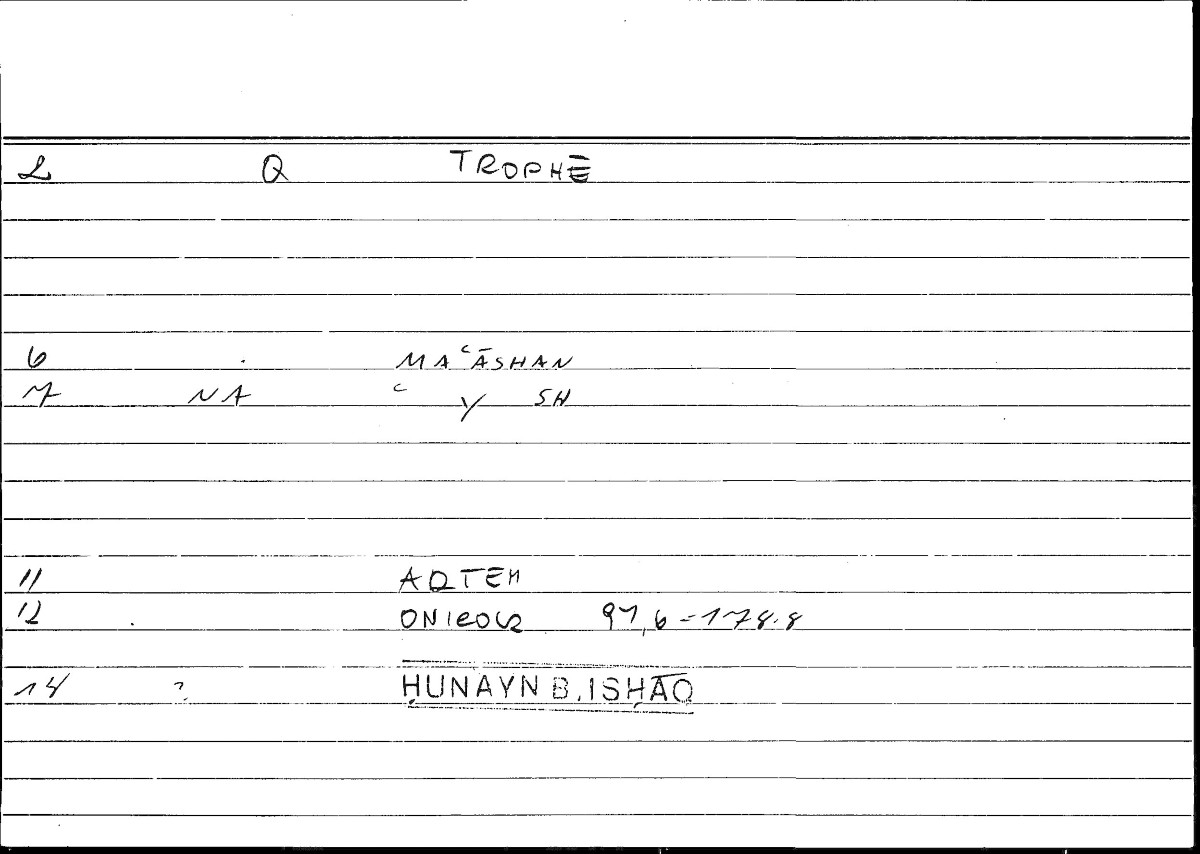 L Q TROPHĒ
6 MAʿĀSHAN
7 NA ʿ Y SH
11 ARTEM
12 ONIROCR 97,6-178.8
14 ? ḤUNAYN B. ISḤĀQ